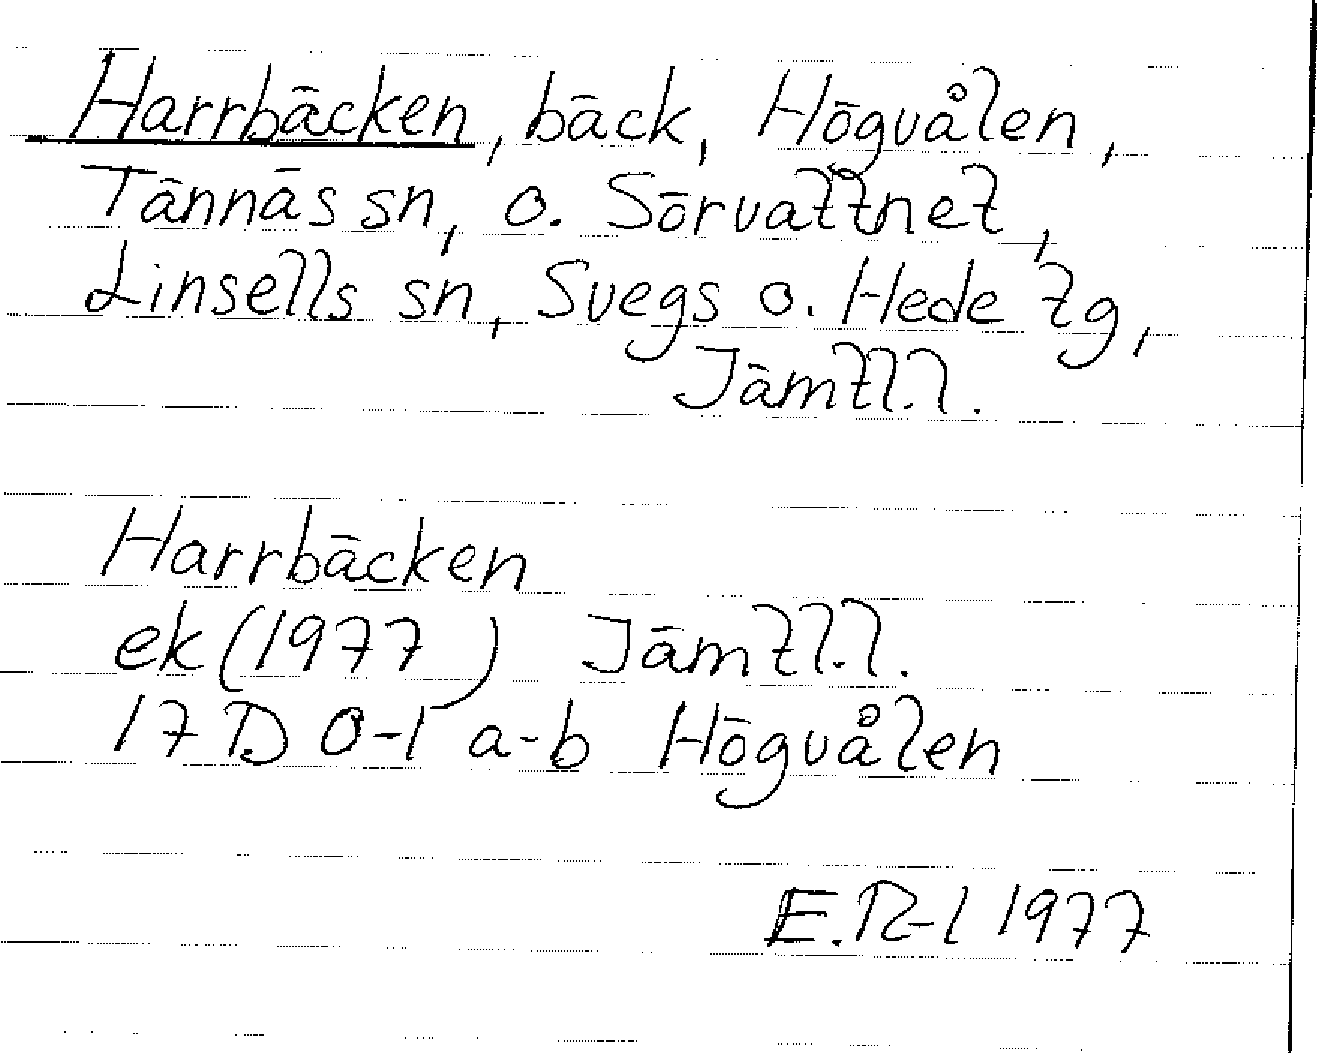 Harrbäcken, bäck, Högvålen,
Tännäs sn, o. Sörvattnet,
Linsells sn, Svegs o. Hede tg,
Jämtl.l.
Harrbäcken
ek (1977) Jämtl.l.
17 D 0-1 a-b Högvålen
E.R-l 1977